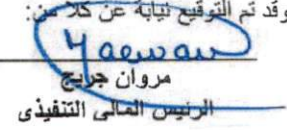 وقد تم التوقيع نيابة عن كلا من:
مروان جريج
الرئيس المالى التنفيذى